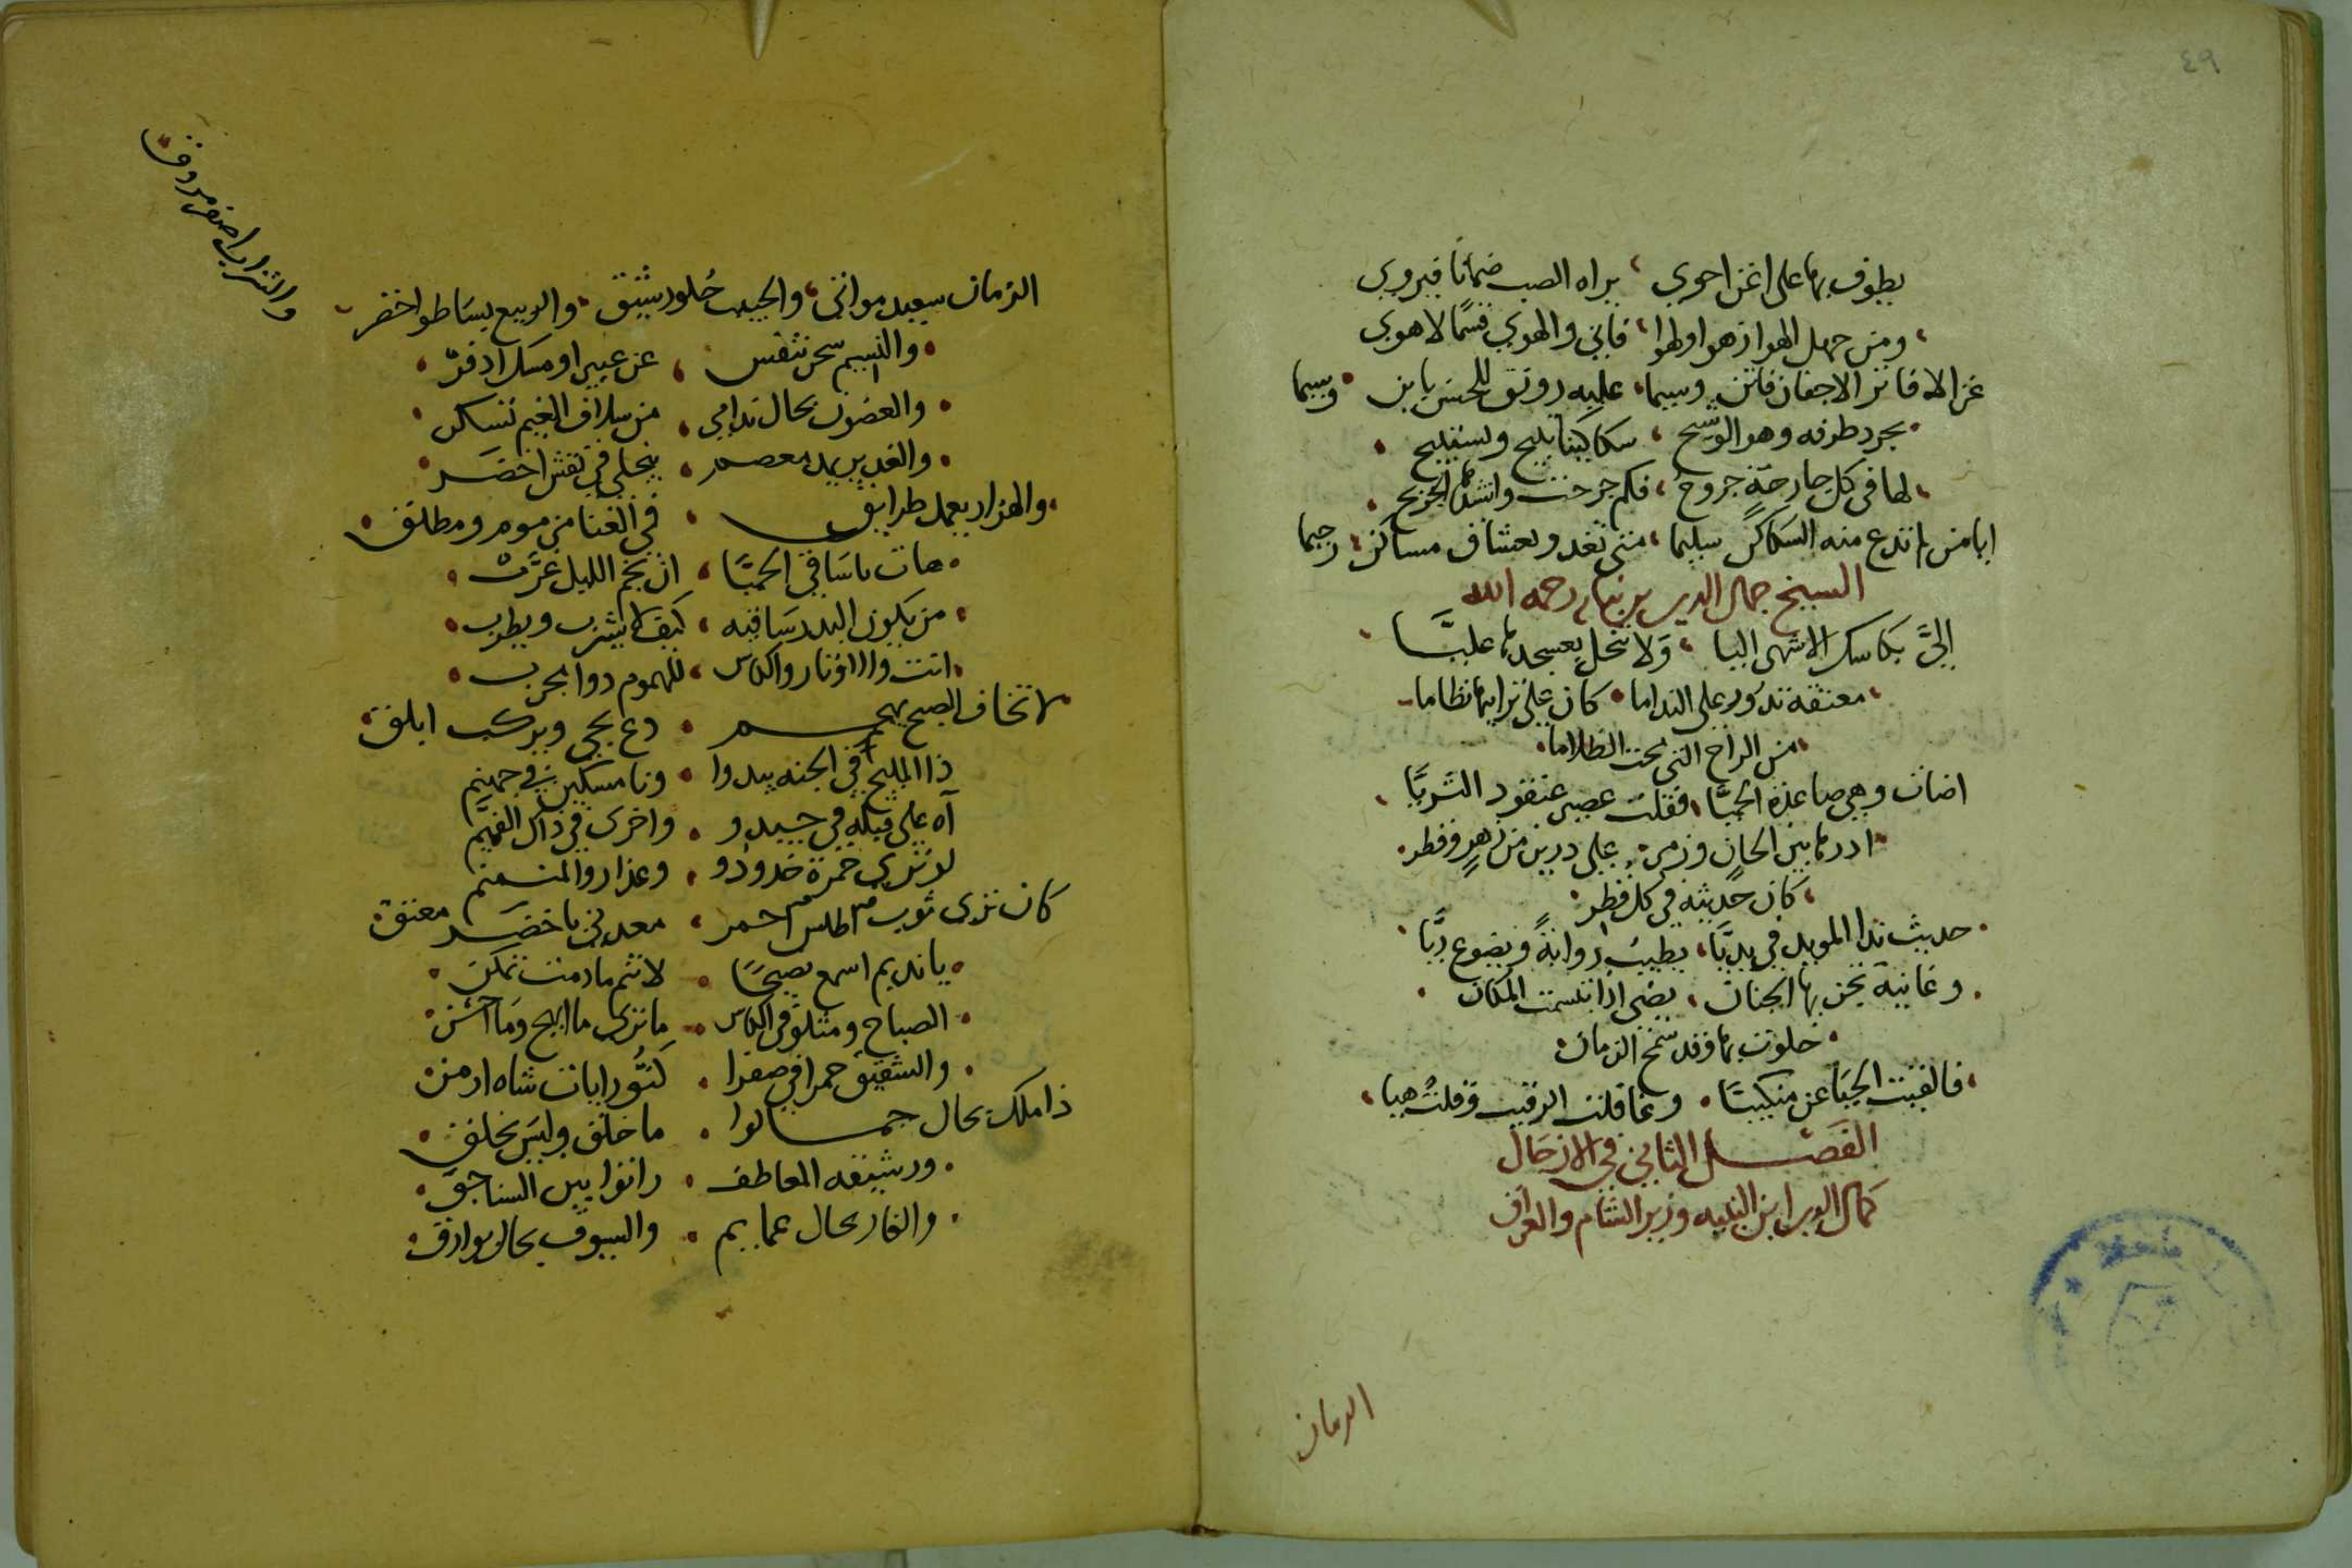 ٤٩
يطوف بها على اغن احوى ، يراه الصب ضمانا فيروى
ومن جهل الهوا زهوا ولهوا ، فاني والهوي قسمًا لاهوى
غزالا فاتر الاجفان فاتن وسيما ، عليه رونق للحسن باين وسيما
يجرد طرفه وهو الوشيح ، سكاكينا تليح وتستليح
لها في كل جارحة جروح ، فكم جرحت وانشدها الجريح
ايا من لم تدع منه السكاكن سليما ، متى تغدو لعشاق مساكن رحيما
الشيخ جمال الدين بن نباته رحمه الله
اليَّ بكاسك الاشهى اليا ، ولا تبخل بعسجدها عليّا
معتقه تدور على الندامى ، كان على ترايبها نظاما
من الراح التي تحت الظلاما
اضات وهي صاعدة الحميَّا ، فقلت عصير عنقود الثريَّا
ادرها بين الحان وزمر ، على درين من زهر وقطر
كان حديثه في كل قطر
حديث ندا المويد في يديَّا ، يطيب روايةً ويضوع ريَّا
وغانية تجن بها الجنان ، يضي اذا تبسمت المكان
خلوت بها وقد سمح الزمان
فالقيت الحيا عن منكبيَّا ، وغافلت الرقيب وقلت هيا
الفصل الثاني في الازجال
كمال الدين ابن النبيه وزير الشام والعراق
الزمان
الزمان سعيد مواتي ، والحبيب حُلو رشيق ، والربيع بساطو اخضر
والشراب اصفر مروق
والنسيم سحر تنفس ، عن عبير او مسك ادفر
والغصون بحال ندامي ، من سلاف الغيم تسكر
والغدير يمد معصم ، ينجلي في نقش اخضر
والهزار يعمل طرايق ، في الغنا من موم ومطلق
هات ياساقي الحميَّا ، ان نجم الليل غرَّب
من يكون البدر ساقيه ، كيف لا يشرب ويطرب
انت والاوتار والكاس ، للهموم دوا مجرب
لا تخاف الصبح يهجم ، دع يجي ويركب ابلق
ذا المليح في الجنه يبدوا ، ونا مسكين في جهنم
آه على قبله في جيدو ، واخرى في داك الفميَّم
لو ترى حمرة خدودو ، وعذارو المنمنم
كان ترى ثوب اطلس احمر ، معدني باخضر معتق
يانديم اسمع نصيحًا ، لاتنم مادمت تمكن
الصباح ومثلو في الكاس ، ما ترى ما ابهج وما احسن
والشقيق حمرا في صفرا ، كنُّو رايات شاه ارمن
ذا ملك بحال جمالوا ، ما خلق وليس يخلق
ورشيقه المعاطف ، راتوا بين السناجق
والغار بحال عمايم ، والسيوف بحال بوارق